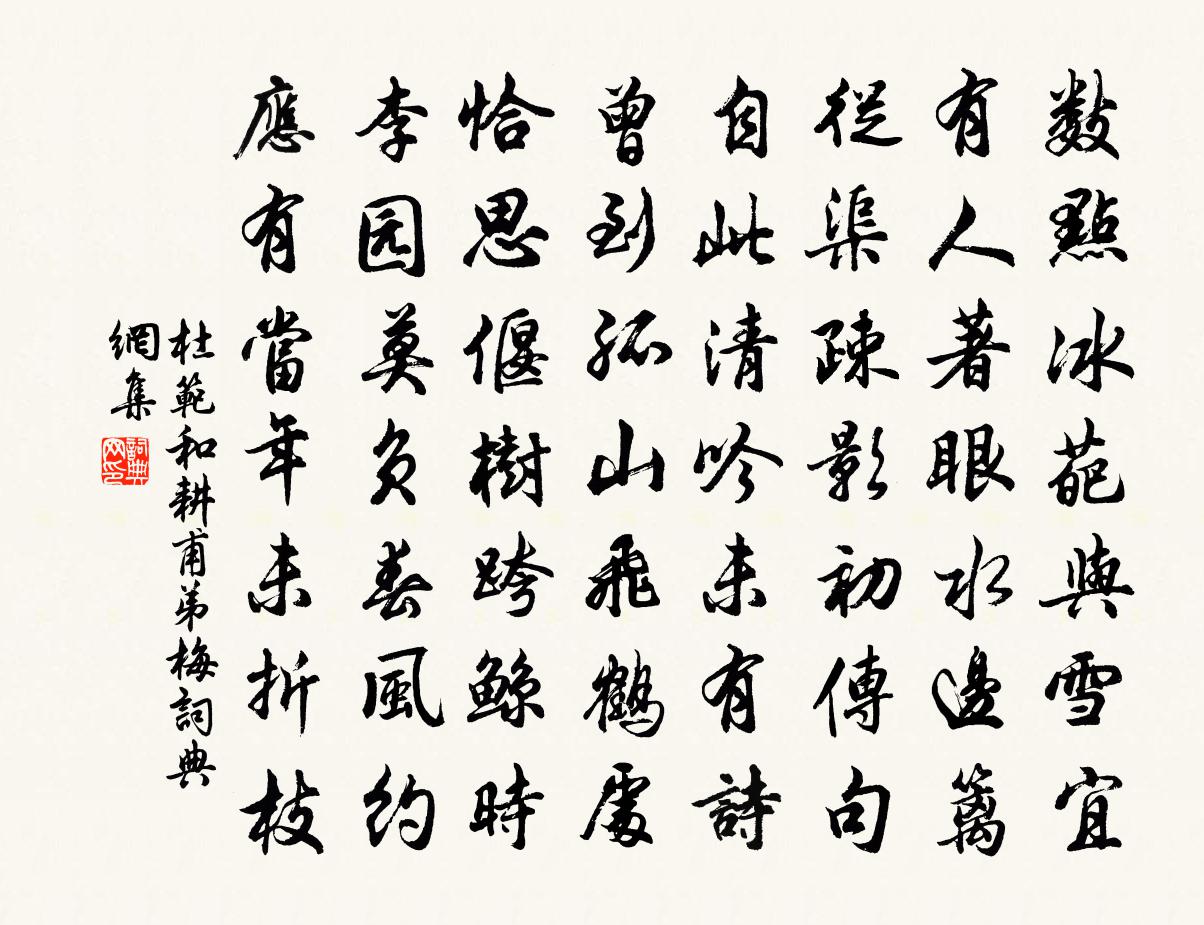 數點冰葩與雪宜
有人著眼水邊籬
從渠疎影初傳句
自此清吟未有詩
曾到孤山飛鶴處
恰思偃樹跨鯨時
李园莫负春風約
應有當年未折枝
杜範和耕甫弟梅詞典
網集
詞典
网印